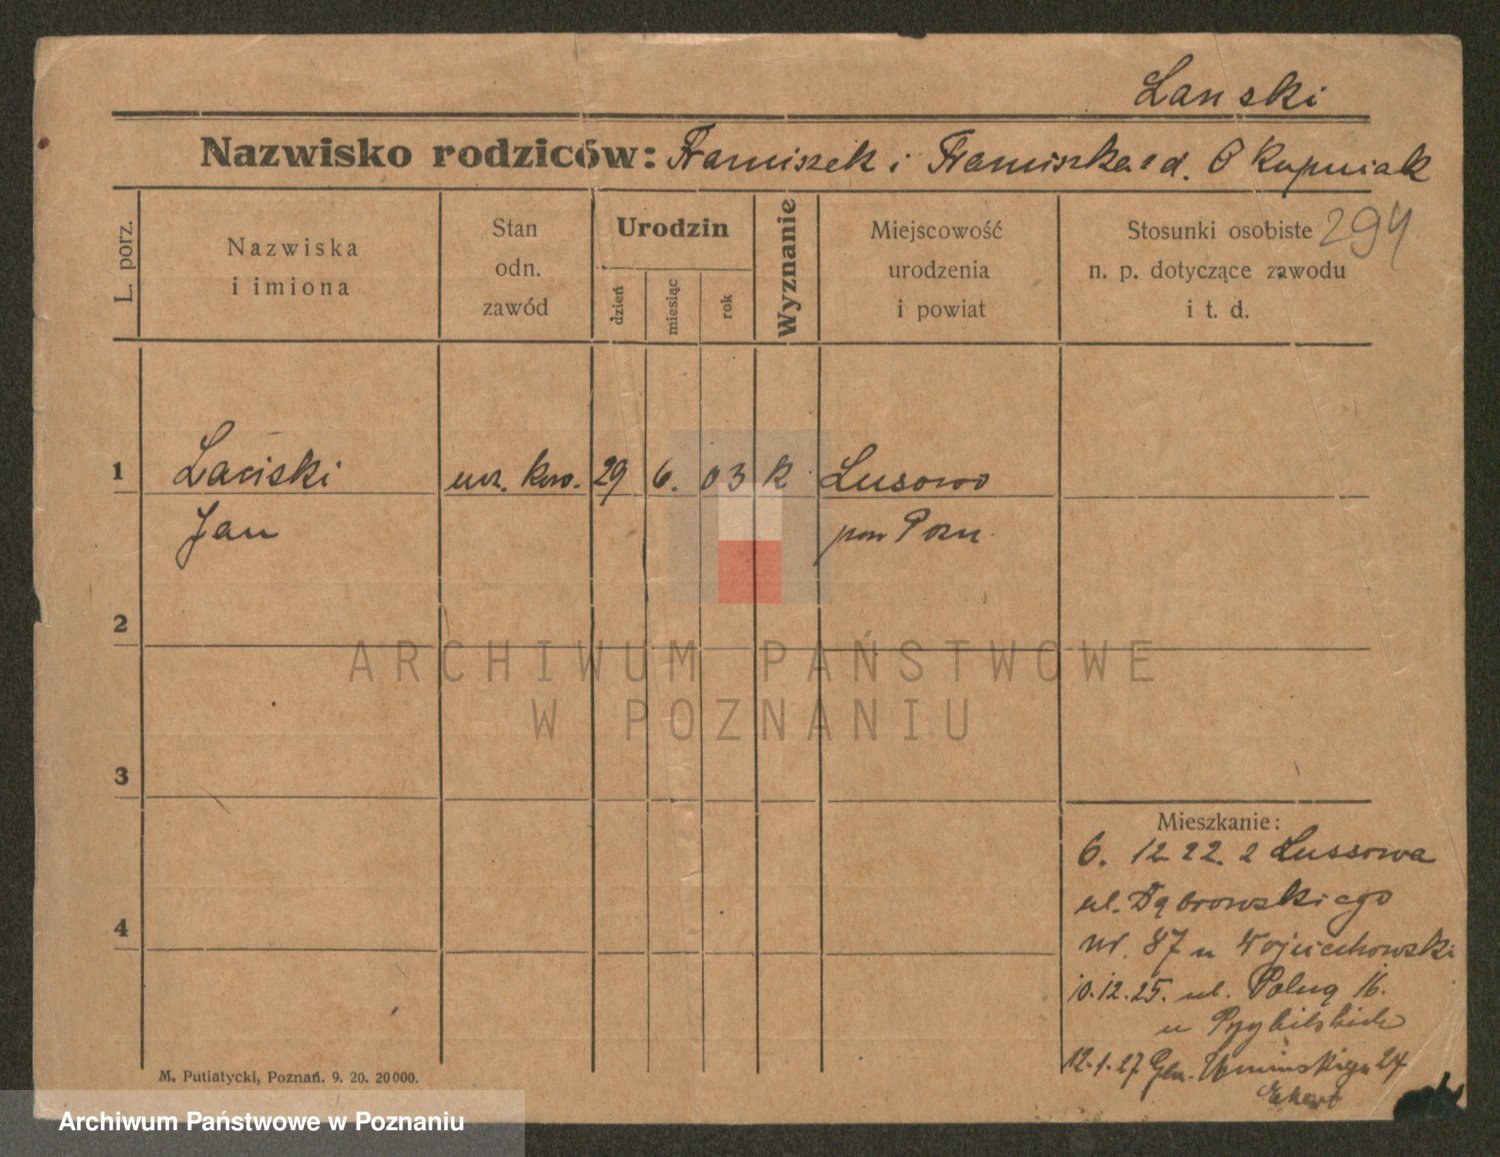 Lanski
Nazwisko rodziców: Franciszek i Franciszka z d. Okupniak
294
L. porz.
Nazwiska
i imiona
Stan
odn.
zawód
Urodzin
dzień
miesiąc
rok
Wyznanie
Miejscowość
urodzenia
i powiat
Stosunki osobiste
n. p. dotyczące zawodu
i t. d.
1
Laciski ucz. kow. 29 6. 03 k Lusowo
Jan pow Pozn.
2
ARCHIWUM PAŃSTWOWE
W POZNANIU
3
4
Mieszkanie:
6. 12 22. z Lussowa
ul. Dąbrowskiego
nr. 87 u Wojciechowski
10.12.25. ul. Polną 16.
u
12.1.27 Gen. Umińskiego 24
Ekert
M. Putiatycki, Poznań. 9. 20. 20000.
Archiwum Państwowe w Poznaniu